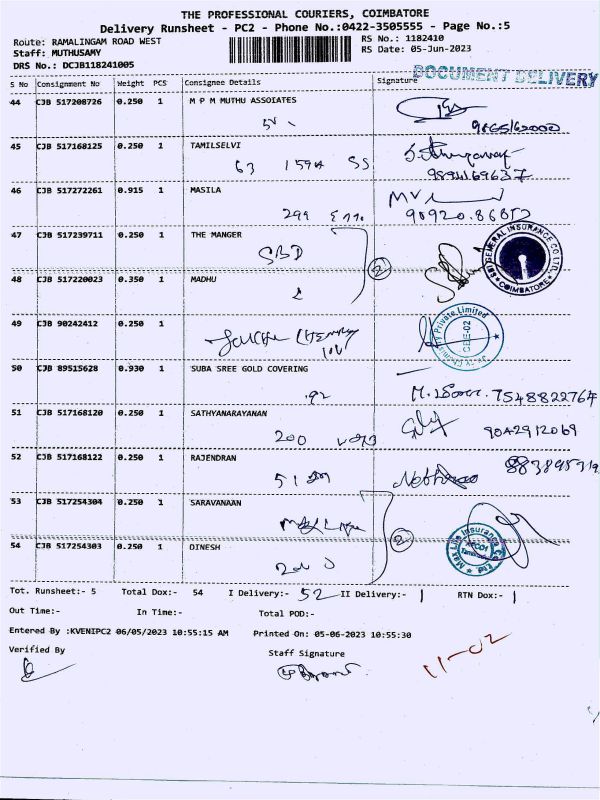 THE PROFESSIONAL COURIERS, COIMBATORE
Delivery Runsheet - PC2 - Phone No.:0422-3505555 - Page No.:5
Route: RAMALINGAM ROAD WEST
RS No.: 1182410
Staff: MUTHUSAMY
RS Date: 05-Jun-2023
DRS No.: DCJB118241005
DOCUMENT DELIVERY
S No Consignment No Weight PCS Consignee Details Signature
44 CJB 517208726 0.250 1 M P M MUTHU ASSOIATES
45 CJB 517168125 0.250 1 TAMILSELVI
63 1594 SS
9894169637
46 CJB 517272261 0.915 1 MASILA
299
47 CJB 517239711 0.250 1 THE MANGER
SBD
SBI GENERAL INSURANCE CO. LTD. COIMBATORE
48 CJB 517220023 0.350 1 MADHU
2
49 CJB 90242412 0.250 1
Private Limited
CBE-02
50 CJB 89515628 0.930 1 SUBA SREE GOLD COVERING
.92
7548822764
51 CJB 517168120 0.250 1 SATHYANARAYANAN
200
9042912069
52 CJB 517168122 0.250 1 RAJENDRAN
53 CJB 517254304 0.250 1 SARAVANAAN
Max Life Insurance Co. Ltd
2
54 CJB 517254303 0.250 1 DINESH
Tot. Runsheet:- 5 Total Dox:- 54 I Delivery:- 52 II Delivery:- 1 RTN Dox:- 1
Out Time:- In Time:- Total POD:-
Entered By :KVENIPC2 06/05/2023 10:55:15 AM Printed On: 05-06-2023 10:55:30
Verified By Staff Signature
11-02